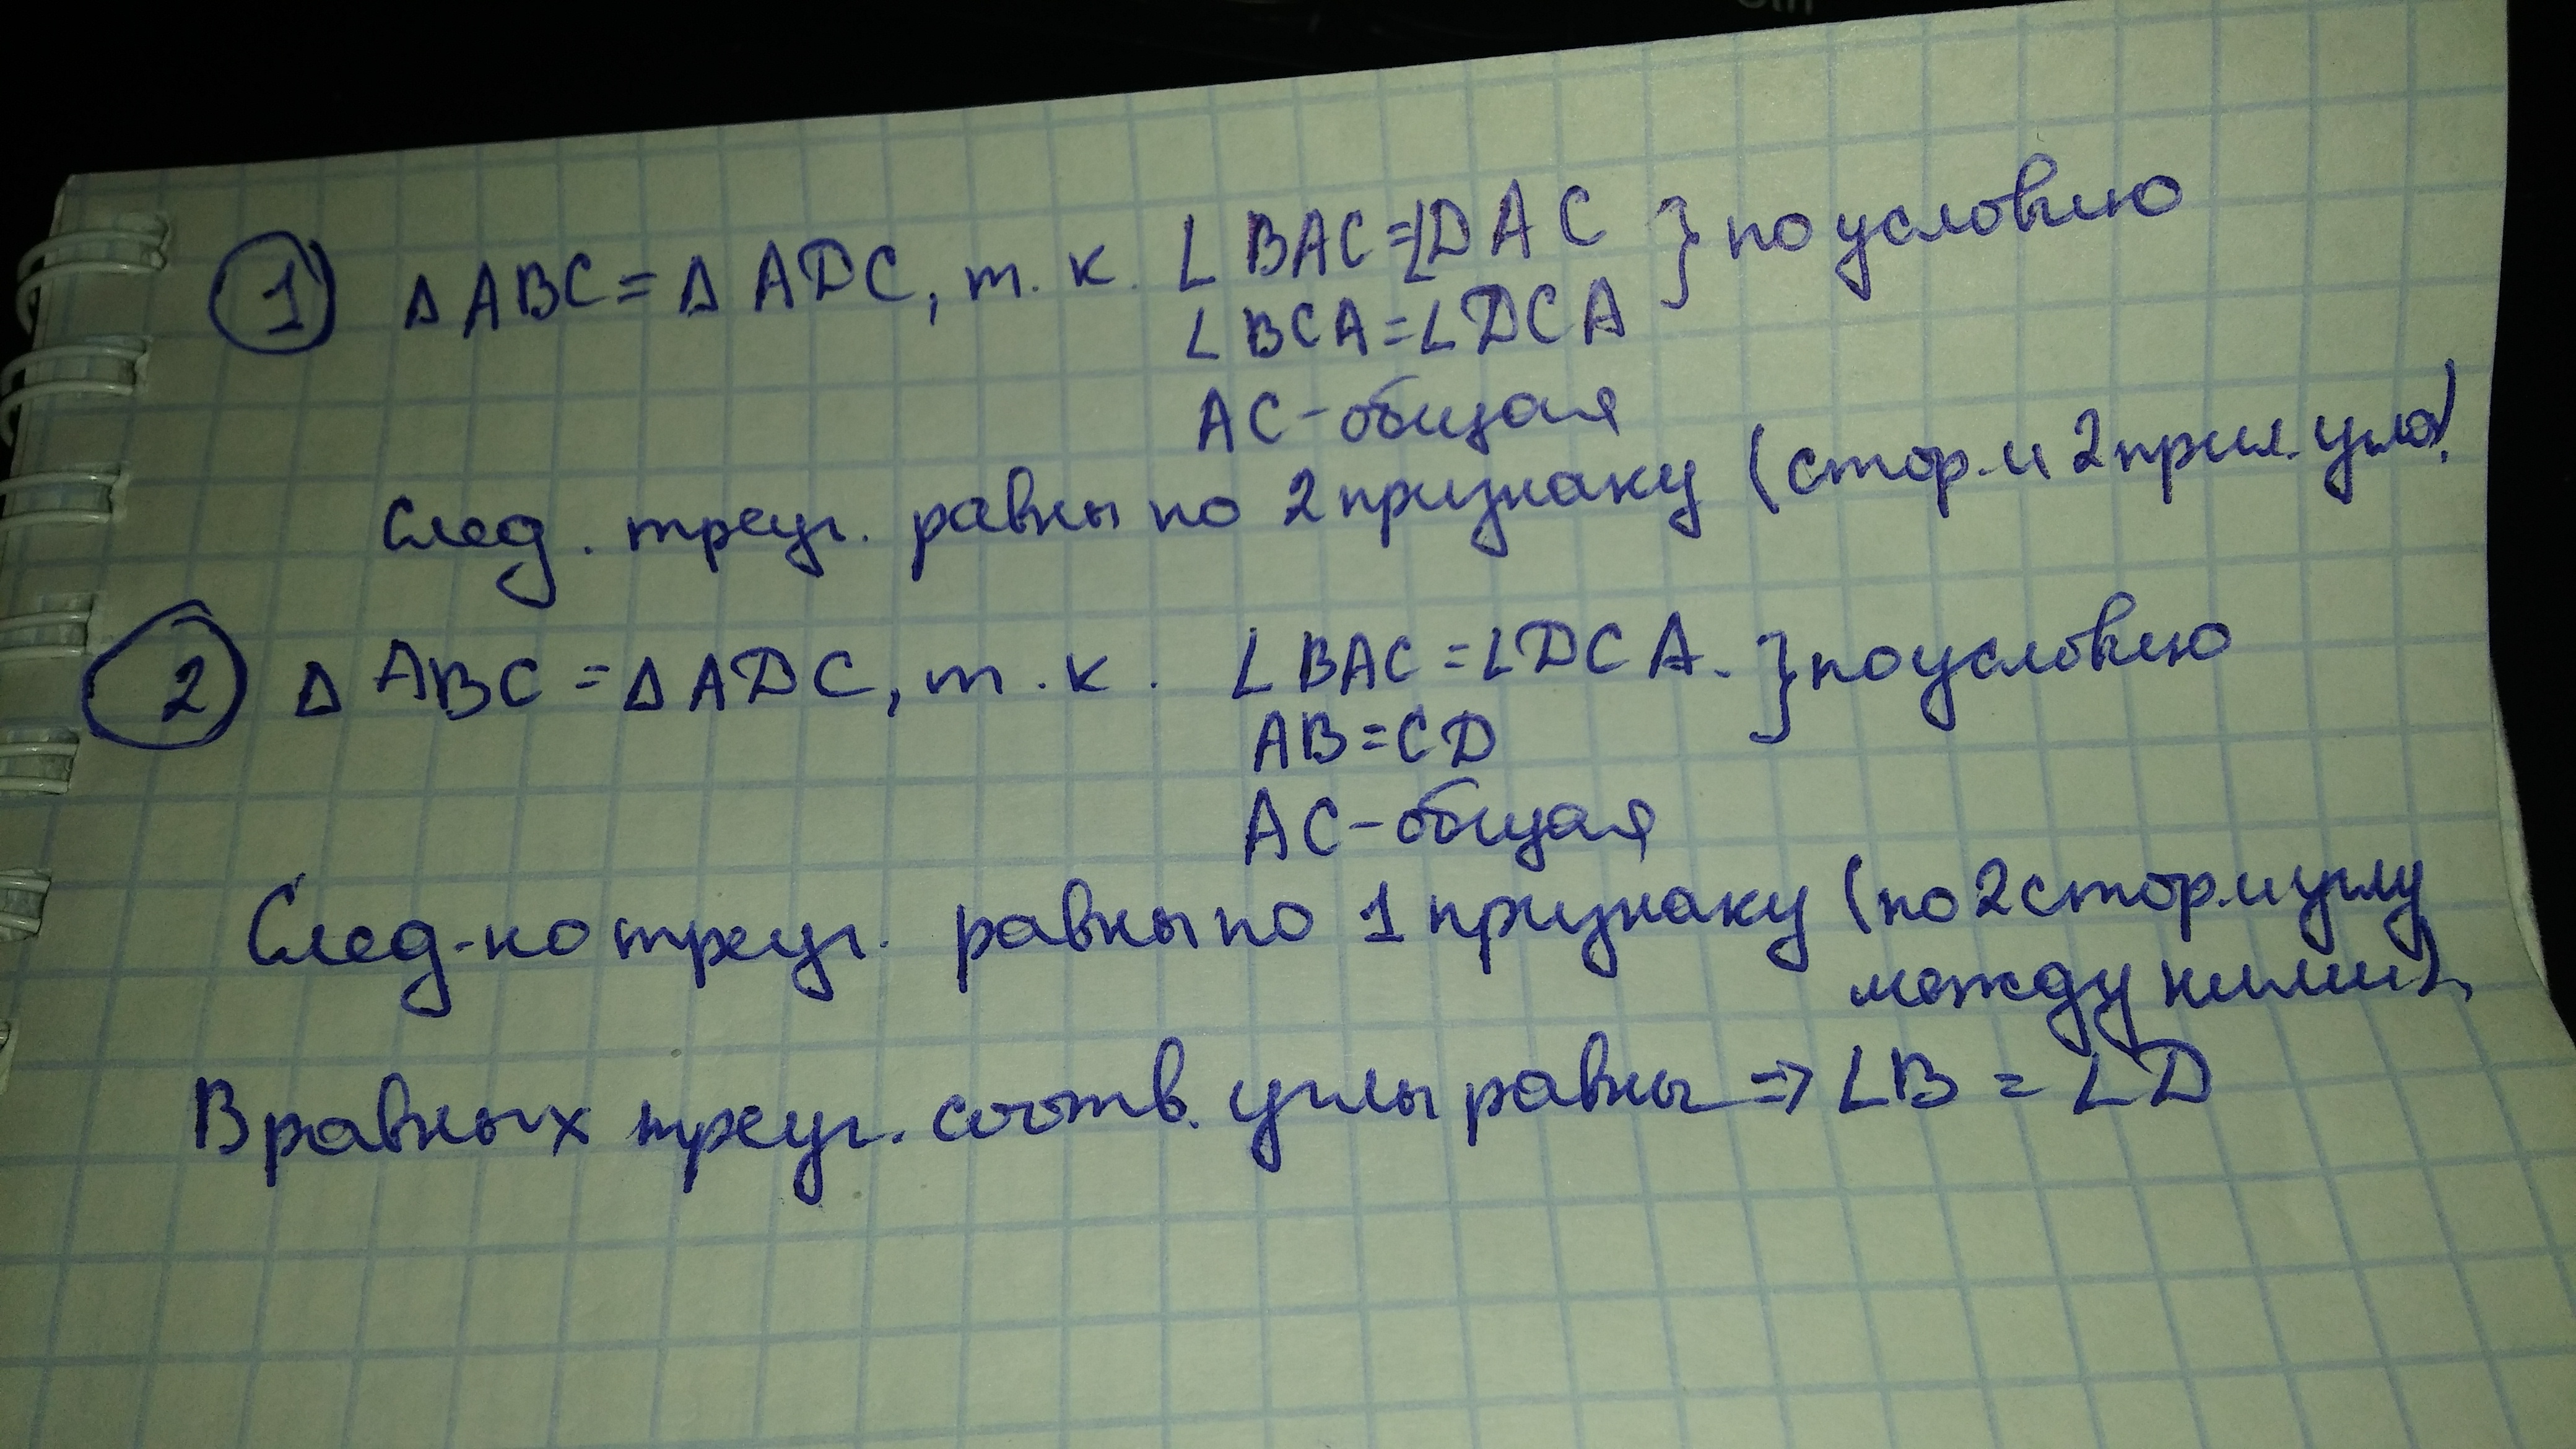 1 Δ ABC = Δ ADC, т. к. ∠ BAC = ∠DAC } по условию
∠ BCA = ∠DCA
AC - общая
След. треуг. равны по 2 признаку (стор. и 2 прил. угла).
2 Δ ABC = Δ ADC, т. к. ∠ BAC = ∠DCA. } по условию
AB = CD
AC - общая
След-но треуг. равны по 1 признаку (по 2 стор. и углу
между ними).
В равных треуг. соотв. углы равны => ∠B = ∠D